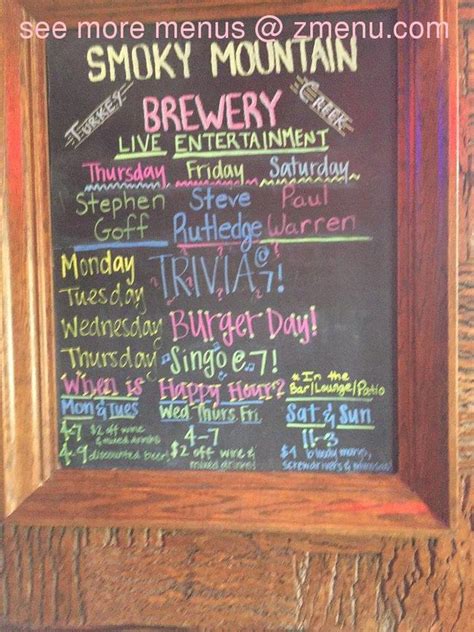 see more menus @ zmenu.com
SMOKY MOUNTAIN
TURKEY BREWERY CREEK
LIVE ENTERTAINMENT
Thursday Friday Saturday
Stephen Goff Steve Rutledge Paul Warren
Monday
Tuesday TRIVIA @ 7!
Wednesday Burger Day!
Thursday Singo @ 7!
When is Happy Hour? *In the Bar/Lounge/Patio
Mon & Tues Wed Thurs Fri Sat & Sun
4-7 $2 off wine & mixed drinks
4-9 discounted beer!
4-7
$2 off wine & mixed drinks!
11-3
bloody marys,
screwdrivers & mimosas